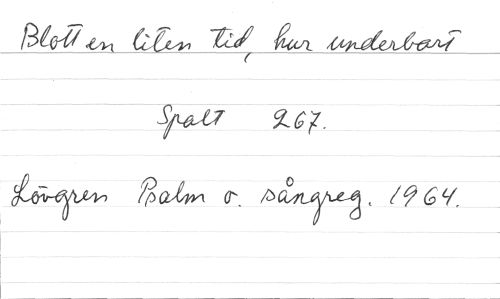 Blott en liten tid, hur underbart
Spalt 267.
Lövgren Psalm o. sångreg. 1964.